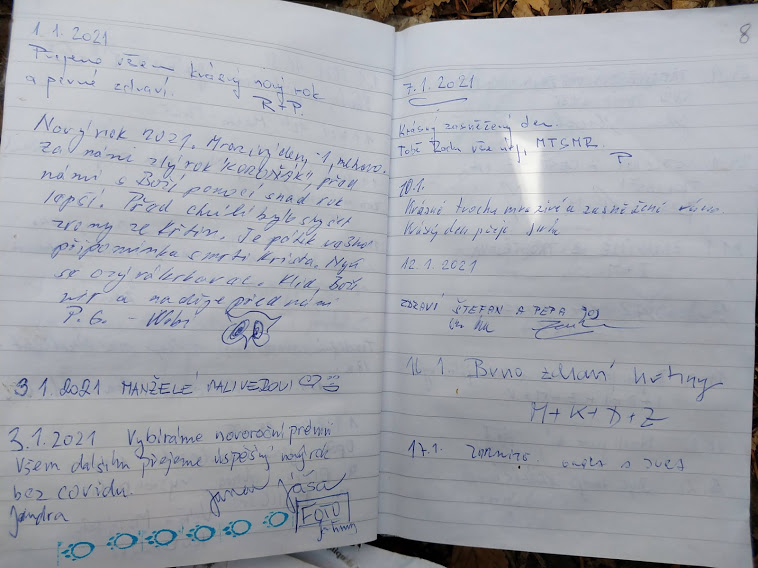 1.1.2021
Přejeme všem krásný nový rok
a pevné zdraví.
R+P.
Nový rok 2021. Mrazivý den, -1,
za námi zlý rok "KOROŇÁK", před
námi s Boží pomocí snad rok
lepší. Před chvílí bylo slyšet
zvony ze Křtin. Je pátek
připomínka smrti Krista. Nyní
se ozývá krkavec. Klid, Boží
mír a naděje před námi
P. G. -
3.1.2021 MANŽELÉ MALIVEDOVI
3.1.2021 Vybíráme novoroční prémii
Všem dalším přejeme úspěšný nový rok
bez covidu.
Jandra
Jana Jáša
FOTO
8
7.1.2021
Krásný zasněžený den
MTSMR.
P
10.1.
Krásné trochu mrazivé a zasněžené ráno.
Krásný den přeje
12.1.2021
ZDRAVÍ ŠTEFAN A PEPA
16.1. Brno zdraví Křtiny
M+K+D+Z
17.1.